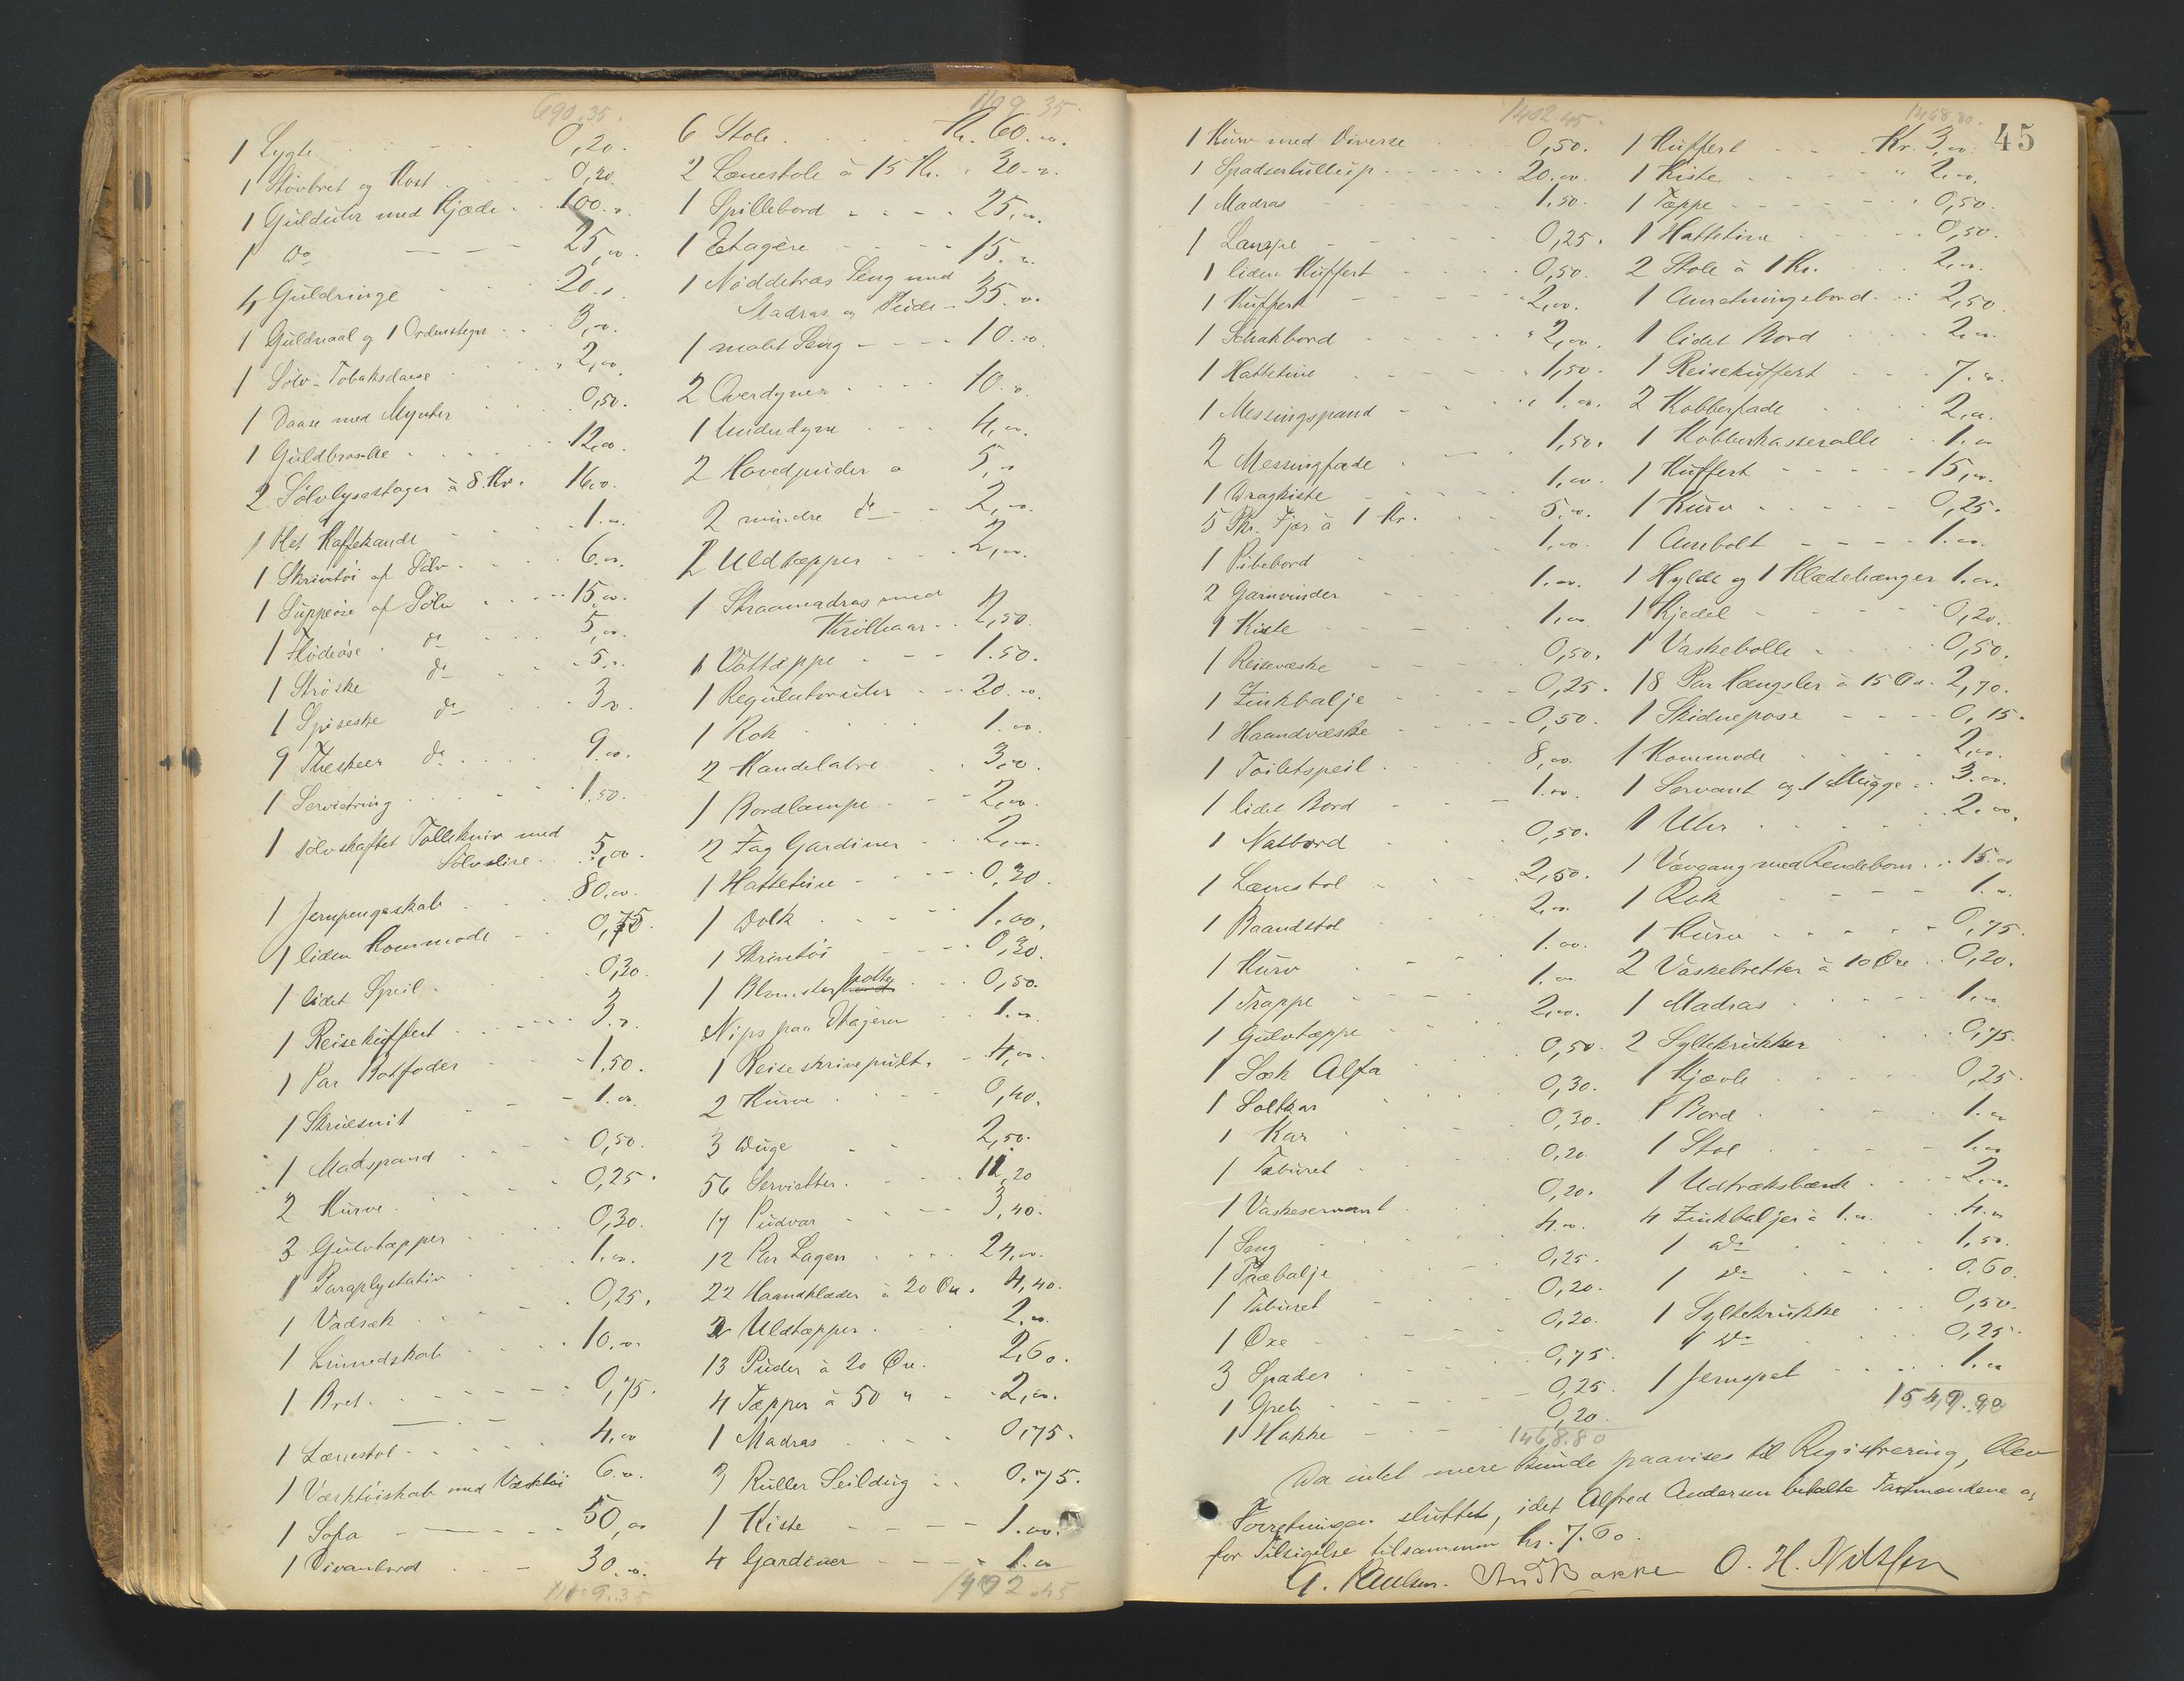 690.35.
1 Lygte 0,20.
1 Støvbret og Kost 0,20.
1 Gulduhr med Kjæde 100.00
1 do 25,00.
4 Guldringe 20.00
1 Guldnaal og 1 Ordenstegn 3,00.
1 Sølv-Tobaksdaase 2,00.
1 Daase med Mynter 0,50.
1 Guldbroche 12,00.
2 Sølvlysestager à 8 Kr. 16.00.
1 Plet Kaffekande 1.00.
1 Skrivetøi af Sølv 6.00.
1 Suppeøse af Sølv 15,00.
1 Flødeøse do 5,00.
1 Strøske do 5.00.
1 Spiseske do 3.00
9 Theskeer do 9.00.
1 Servietring 1.50.
1 sølvskaftet Tollekniv med
Sølvslire 5,00.
1 Jernpengeskab 80.00.
1 liden Kommode 0,75.
1 lidet Speil 0,20.
1 Reisekuffert 3.00.
1 Par Botforer 1,50.
1 Skruesnit 1.00.
1 Madspand 0,50.
2 Kurve 0,25.
3 Gulvtæpper 0,30.
1 Paraplystativ 1.00.
1 Vadsæk 0,25.
1 Linnedskab 10.00.
1 Bret 0,75.
1 Lænestol 4,00
1 Værktøiskab med Værktøi 6.00.
1 Sofa 50,00
1 Divanbord 30.00.
1109.35
1109.35.
6 Stole Kr. 60.00.
2 Lænestole à 15 Kr. 30.00.
1 Spillebord 25,00.
1 Etagère 15.00.
1 Nøddetræs Seng med
Madras og Pude 35.00.
1 malet Seng 10.00.
2 Overdyner 10.00.
1 Underdyne 4,00.
2 Hovedpuder 5,00
2 mindre do 2,00.
2 Uldtæpper 2,00.
1 Straamadras med
Krølhaar 2,50.
1 Vattæppe 1.50.
1 Regulatoruhr 20.00.
1 Rok 1.00.
2 Kandelabre 3,00.
1 Bordlampe 2,00.
2 Fag Gardiner 2,00.
1 Hattetine 0,30.
1 Dolk 1.00.
1 Skrivetøi 0,30.
1 Blomsterpotte 0,50.
Nips paa Etageren 1.00.
1 Reiseskrivepult 4,00.
2 Kurve 0,40.
3 Duge 2,50.
56 Servietter 11,20
17 Pudvar 3,40.
12 Par Lagen 24,00.
22 Haandklæder à 20 Øre. 4,40.
2 Uldtæpper 2.00.
13 Puder à 20 Øre. 2,60.
4 Tæpper à 50 " 2,00.
1 Madras 0,75.
3 Ruller Seildug 0.75.
1 Kiste 1.00.
4 Gardiner 1.00
1402.45
45
1402.45.
1 Kurv med Diverse 0,50.
1 Spadserhulleip 20.00.
1 Madras 1.50.
1 Lampe 0,25.
1 liden Kuffert 0,50.
1 Kuffert 2,00.
1 Schakbord 2,00.
1 Hattetine 1,50.
1 Messingspand 1.00.
2 Messingfade 1,50.
1 Dragkiste 1,00.
5 Pkr. Fjær à 1 Kr. 5.00.
1 Pibebord 1,00.
2 Garnvinder 1.00.
1 Kiste 1,00
1 Reisevæske 0,50.
1 Zinkbalje 0,25.
1 Haandvæske 0,50.
1 Toiletspeil 8,00.
1 lidet Bord 1.00.
1 Natbord 0,50.
1 Lænestol 2,50.
1 Baandstol 2,00.
1 Kurv 1.00.
1 Trappe 1.00
1 Gulvtæppe 2,00.
1 Sæk Alfa 0,50.
1 Saltkar 0,30.
1 Kar 0,30.
1 Taburet 0,20
1 Vaskeservant 0,20.
1 Seng 4.00.
1 Træbalje 0,25.
1 Taburet 0,20.
1 Øxe 0,20.
3 Spader 0,75.
1 Greb 0,25.
1 Hakke 0,20.
1468.80
1468,80.
1 Kuffert Kr. 3,00.
1 Kiste " 2.00.
1 Tæppe 0,50.
1 Hattetine 0,50.
2 Stole à 1 Kr. 2,00.
1 Anretningsbord 2,50
1 lidet Bord 2.00.
1 Reisekuffert 7.00.
2 Kobberfade 2,00.
1 Kobberkasserolle 1.00
1 Kuffert 15,00.
1 Kurv 0,25.
1 Ambolt 1.00.
1 Hylde og 1 Klædehænger 1.00.
1 Kjedel 0,20.
1 Vaskebolle 0,50.
18 Par Hængsler à 15 Øre. 2,70.
1 Skidnepose 0,15.
1 Kommode 2,00.
1 Servant og 1 Mugge 3.00.
1 Uhr 2.00.
1 Vævgang med Rendebom 15.00
1 Rok 1.00.
1 Kurv 0,75.
2 Vaskebretter à 10 Øre 0,20.
1 Madras 1.00
2 Syltekrukker 0,75.
1 Kjævle 0,25.
1 Bord 1.00
1 Stol 1.00
1 Udtræksbænk 2.00.
4 Zinkbaljer à 1.00. 4.00
1 do 1,50.
1 do 0.60.
1 Syltekrukke 0,50.
4 do 0,25.
1 Jernspet 1.00
1549.90
Da intet mere kunde paavises til Registrering, blev
Forretningen sluttet, idet Alfred Andersen betalte Taxtmændene og
for Tilsigelse tilsammen kr. 7.60.
G. Paulsen. And Bakke O. H. Nilssen